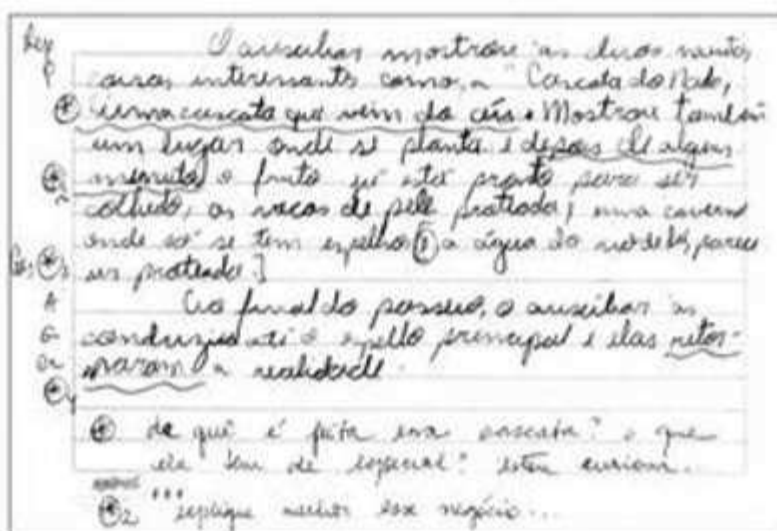 O auxiliar mostrou as duas muitas
coisas interessants como, a "Cascata do Nado,
uma cascata que vem do céu. Mostrou também
um lugar onde se planta e depois de alguns
minutos o fruto já está pronto para ser
colhido, as vacas de pele prateada, uma caverna
onde só se tem espelhos a água do rio parece
ser prateada.]
Ao final do passeio, o auxiliar as
conduziu até o espelho principal e elas retor-
naram a realidade.
de quê é feita essa cascata? o que
ela tem de especial? estou curiosa...
2 ... explique melhor esse negócio...